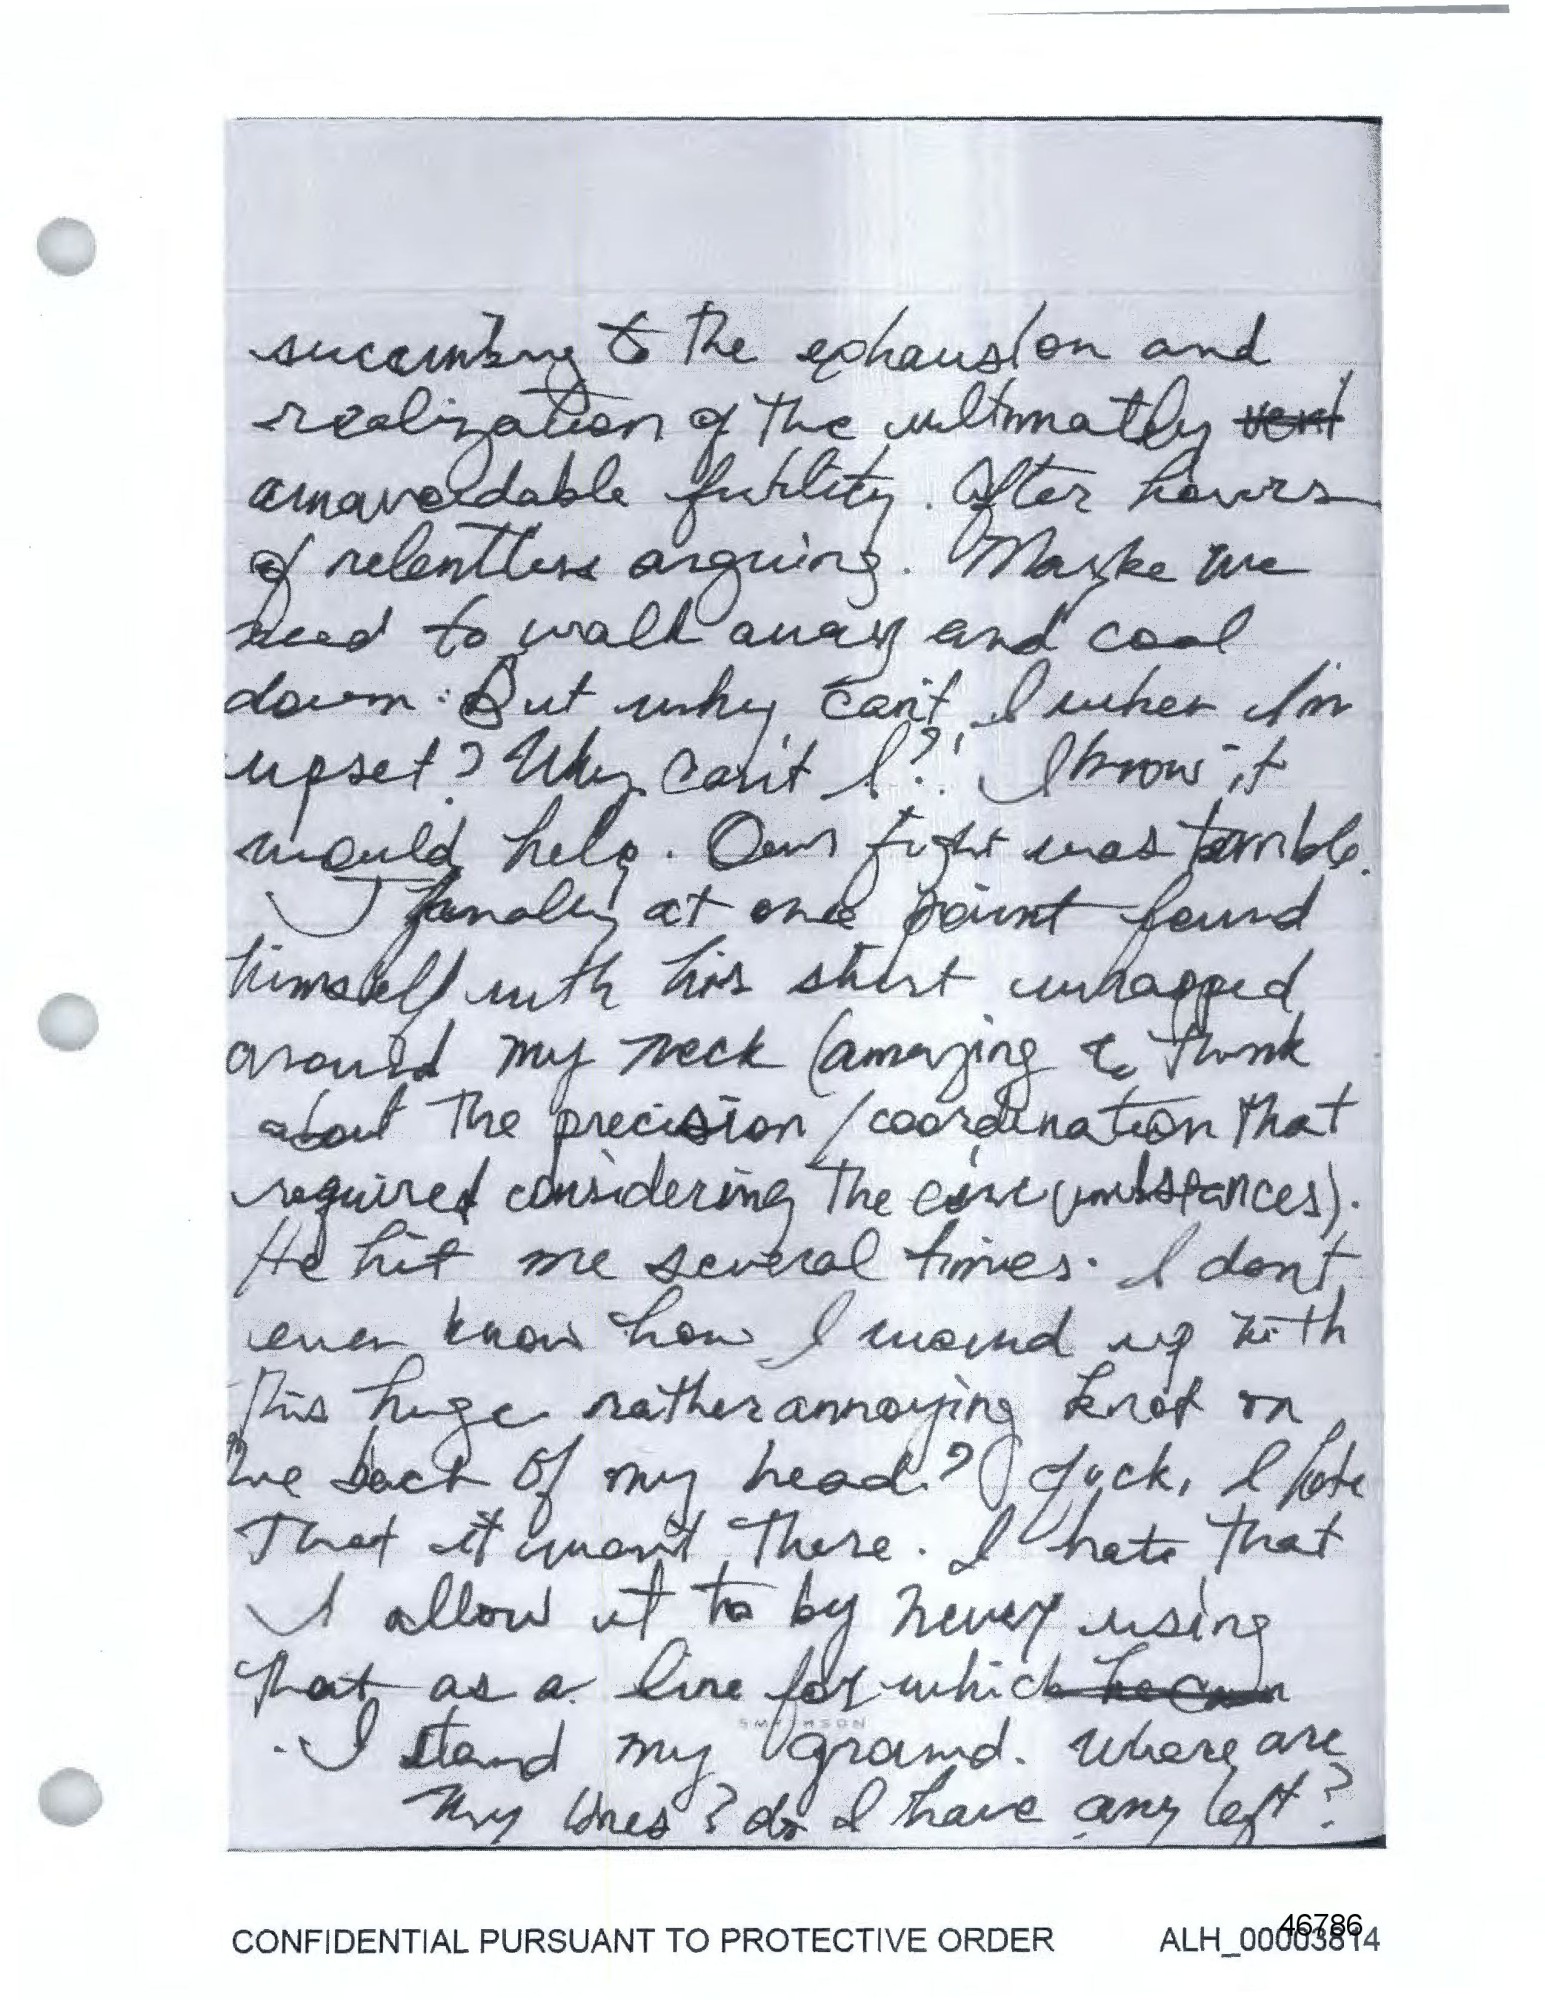 succumbing to the exhaustion and
realization of the ultimatly vent
unavoidable futility. After hours
of relentless arguing. Maybe we
need to walk away and cool
down. But why can't I when I'm
upset? Why can't I?! I know it
would help. Our fight was terrible.
J finally at one point found
himself with his shirt wrapped
around my neck (amazing to think
about the precision/coordination that
required considering the circumbstances).
He hit me several times. I don't
even know how I wound up with
this huge rather annoying knot on
the back of my head? Fuck, I hate
that it wasn't there. I hate that
I allow it to by never using
that as a line for which he can
SMYTHSON
I stand my ground. Where are
my lines? do I have any left?
CONFIDENTIAL PURSUANT TO PROTECTIVE ORDER ALH_00003814
46786